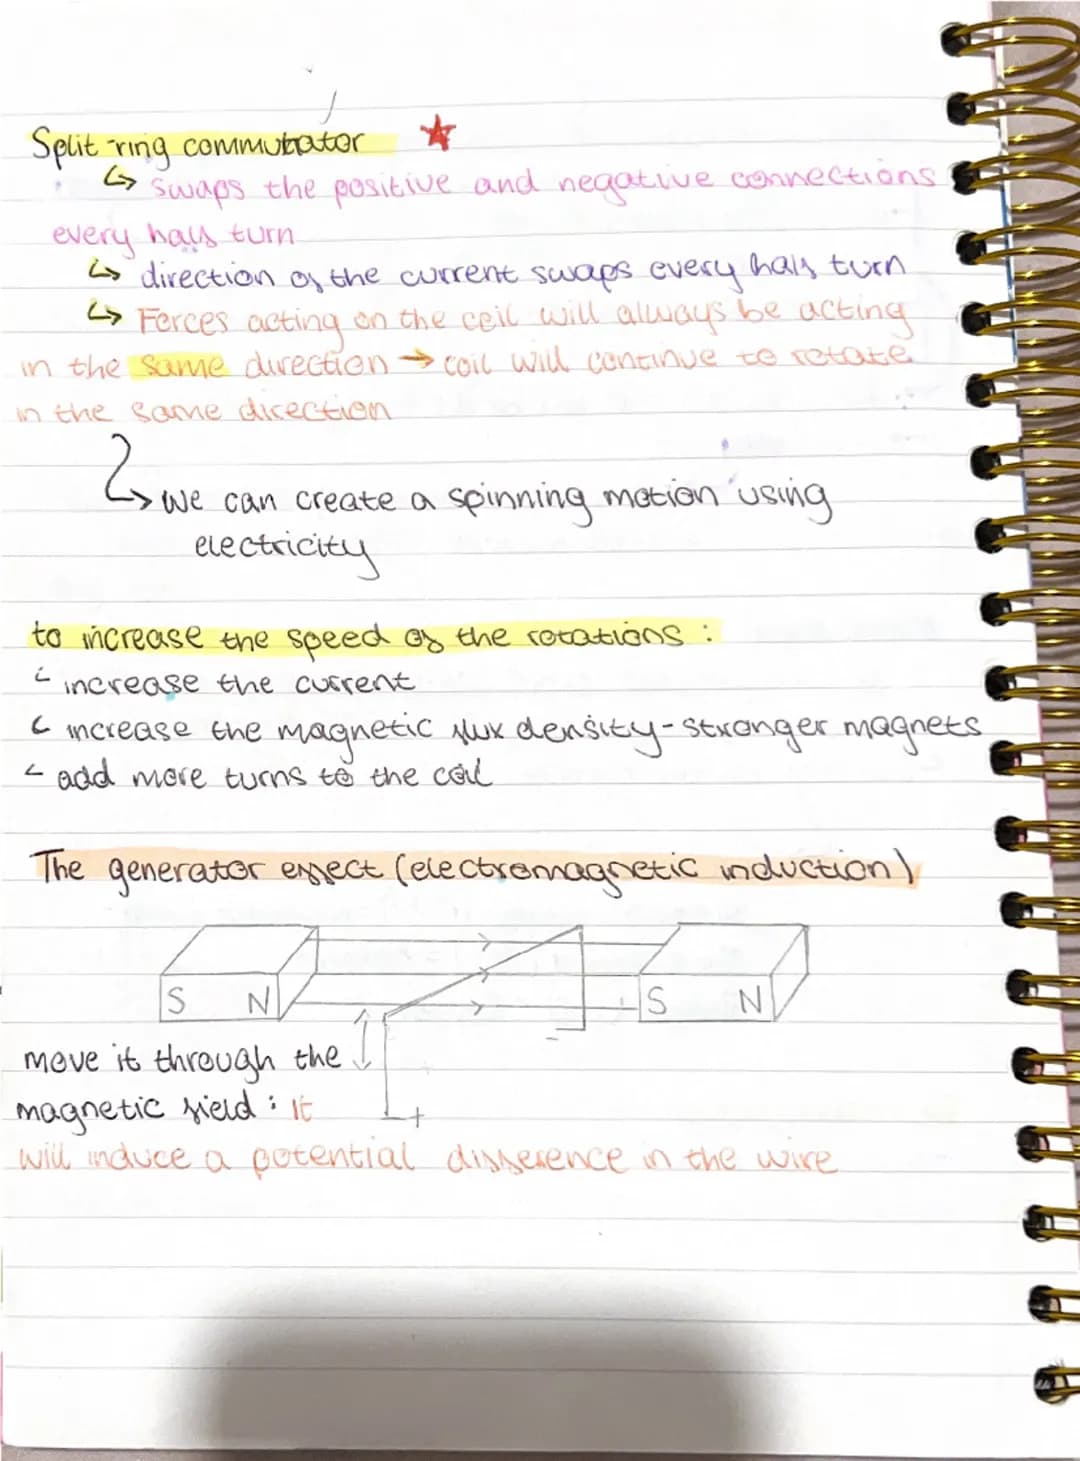 Split-ring commutator
↳ swaps the positive and negative connections
every half turn
↳ direction of the current swaps every half turn
↳ Forces acting on the coil will always be acting
in the same direction → coil will continue to rotate
in the same direction
↳ we can create a spinning motion using
electricity
to increase the speed of the rotations :
increase the current
increase the magnetic flux density - stronger magnets
add more turns to the coil
The generator effect (electromagnetic induction)
S N S N
move it through the
magnetic field : it
- +
will induce a potential difference in the wire